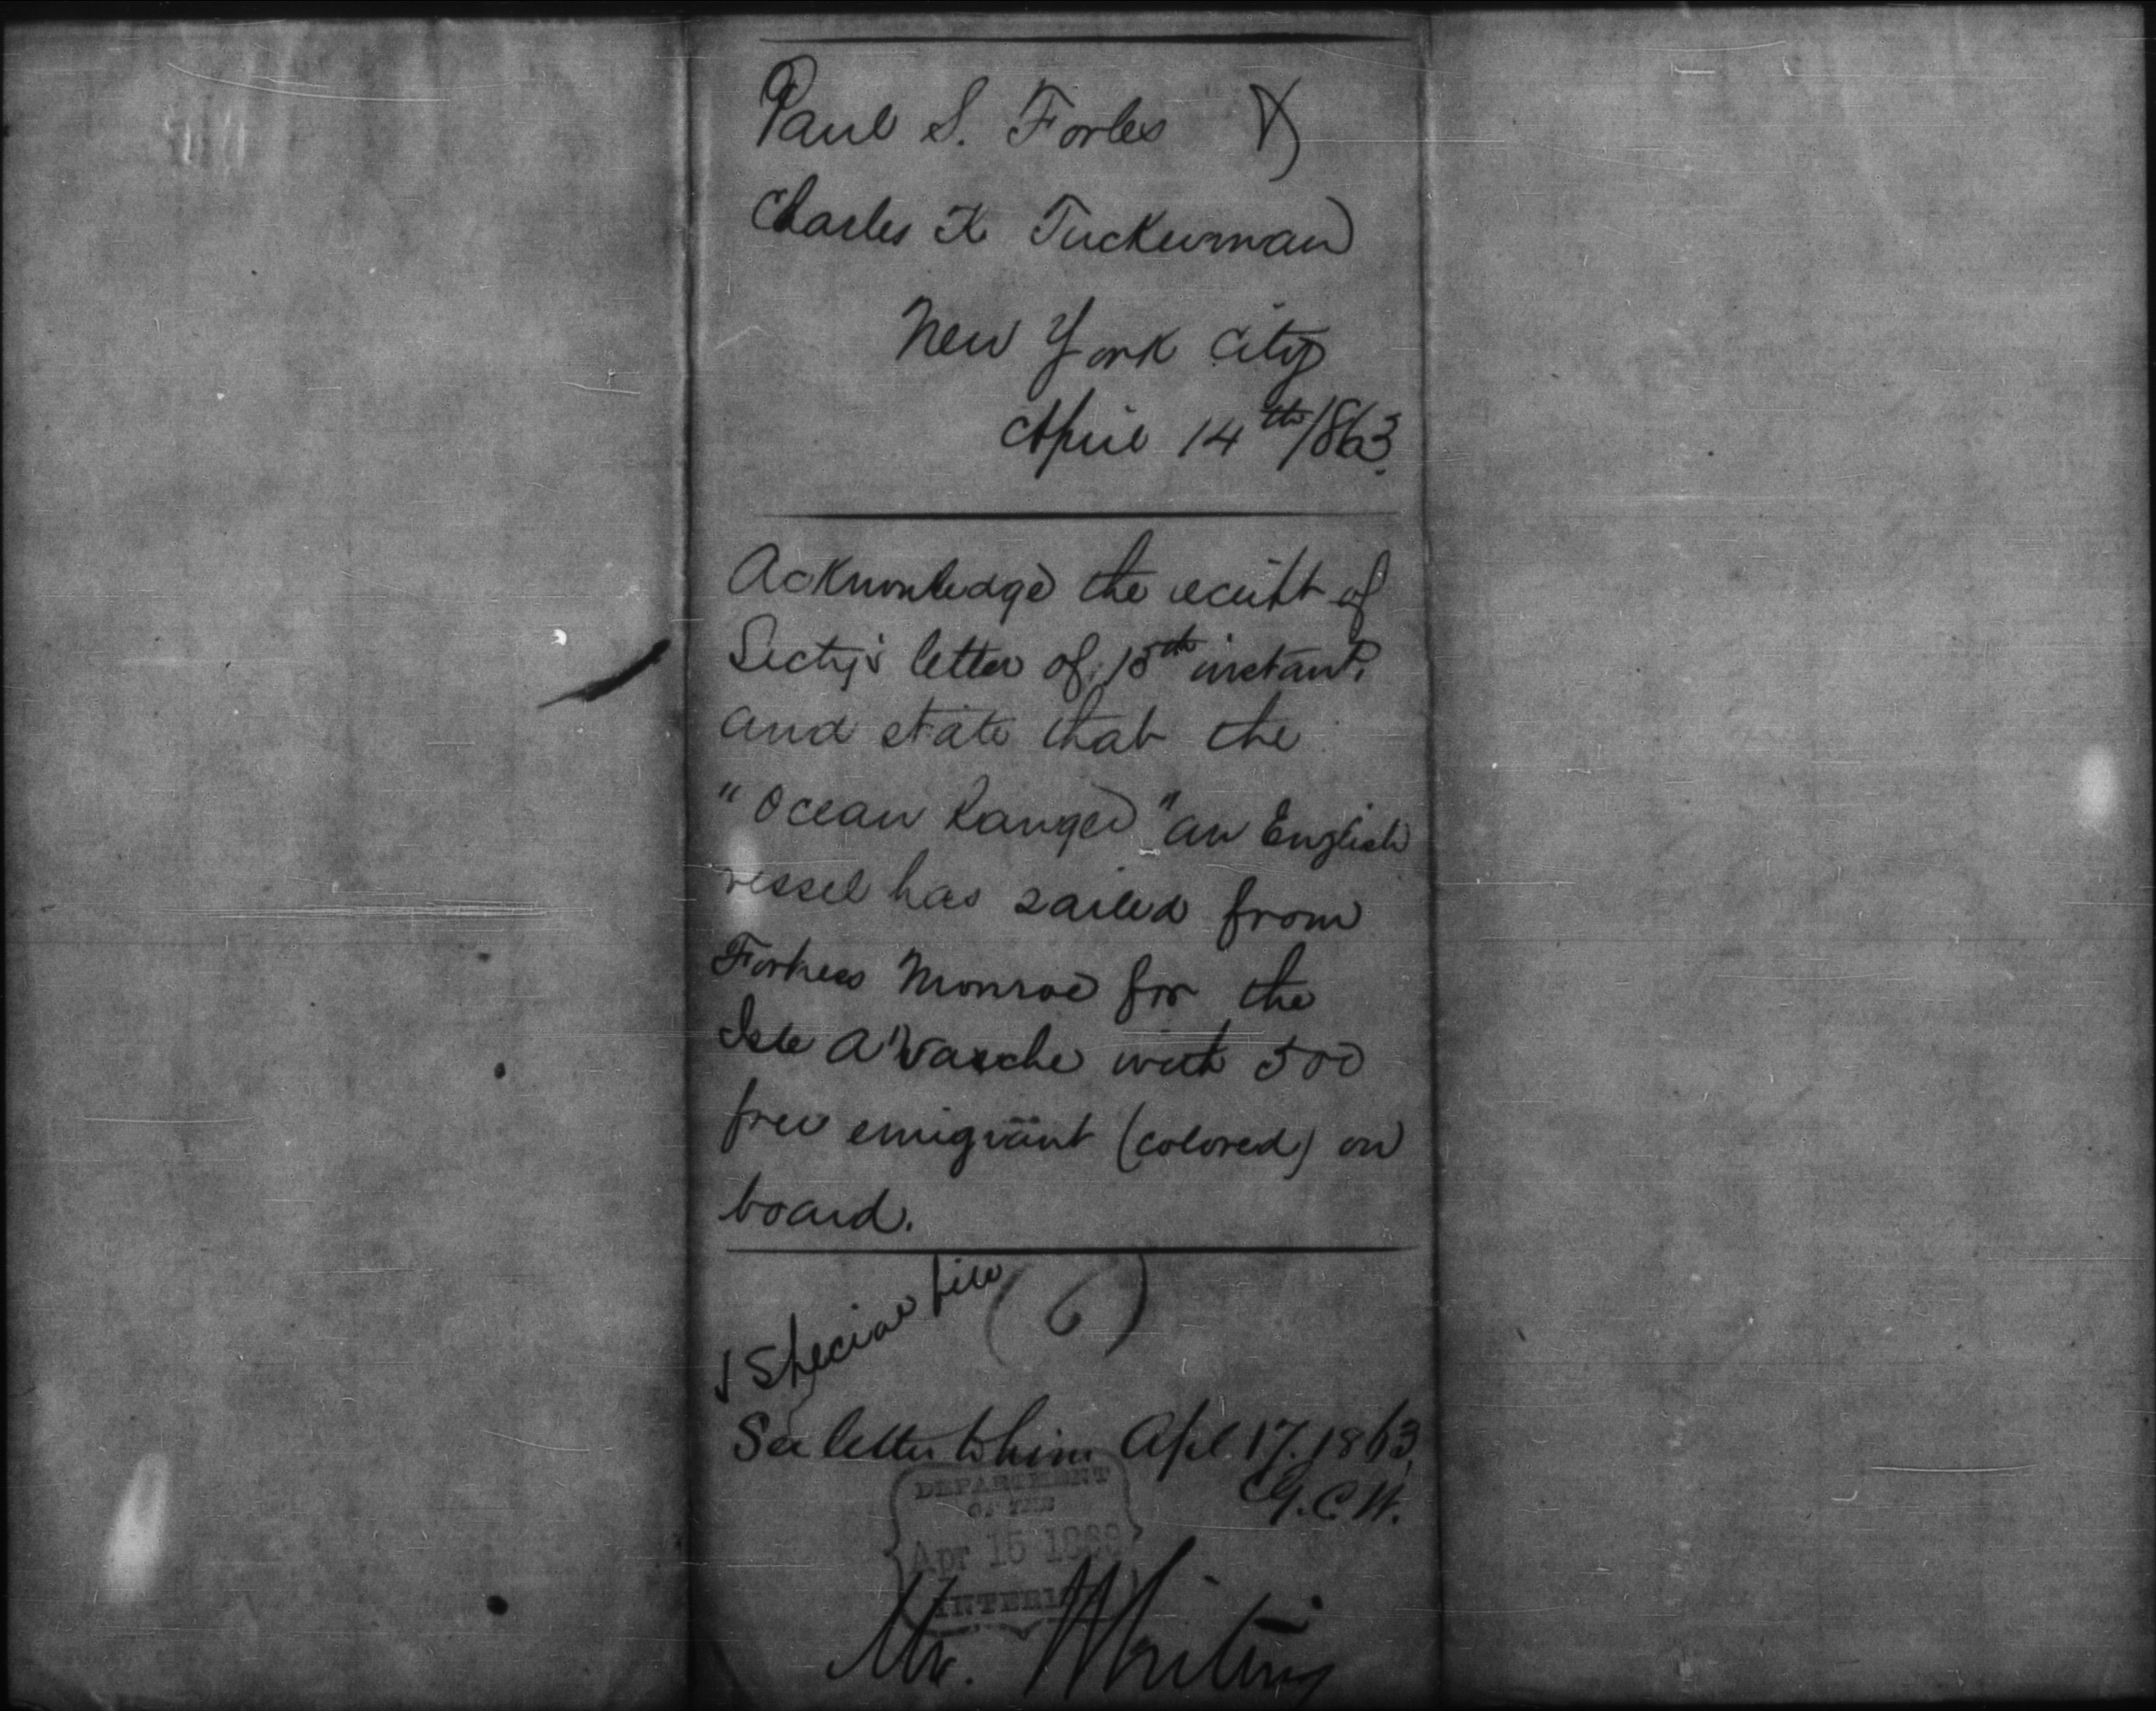 Paul S. Forbes &
Charles K Tuckerman
New York City
April 14th/863.
Acknowledge the receipt of
Secty's letter of 15th instant.
and state that the
"Ocean Ranger" an English
vessel has sailed from
Fortress Monroe for the
Isle A'Vasche with 500
free emigrant (colored) on
board.
Special file (6)
See letter to him Apl. 17. 1863
G.C.W.
DEPARTMENT
OF THE
Apr 15 1863
INTERIOR
Mr. Whiting